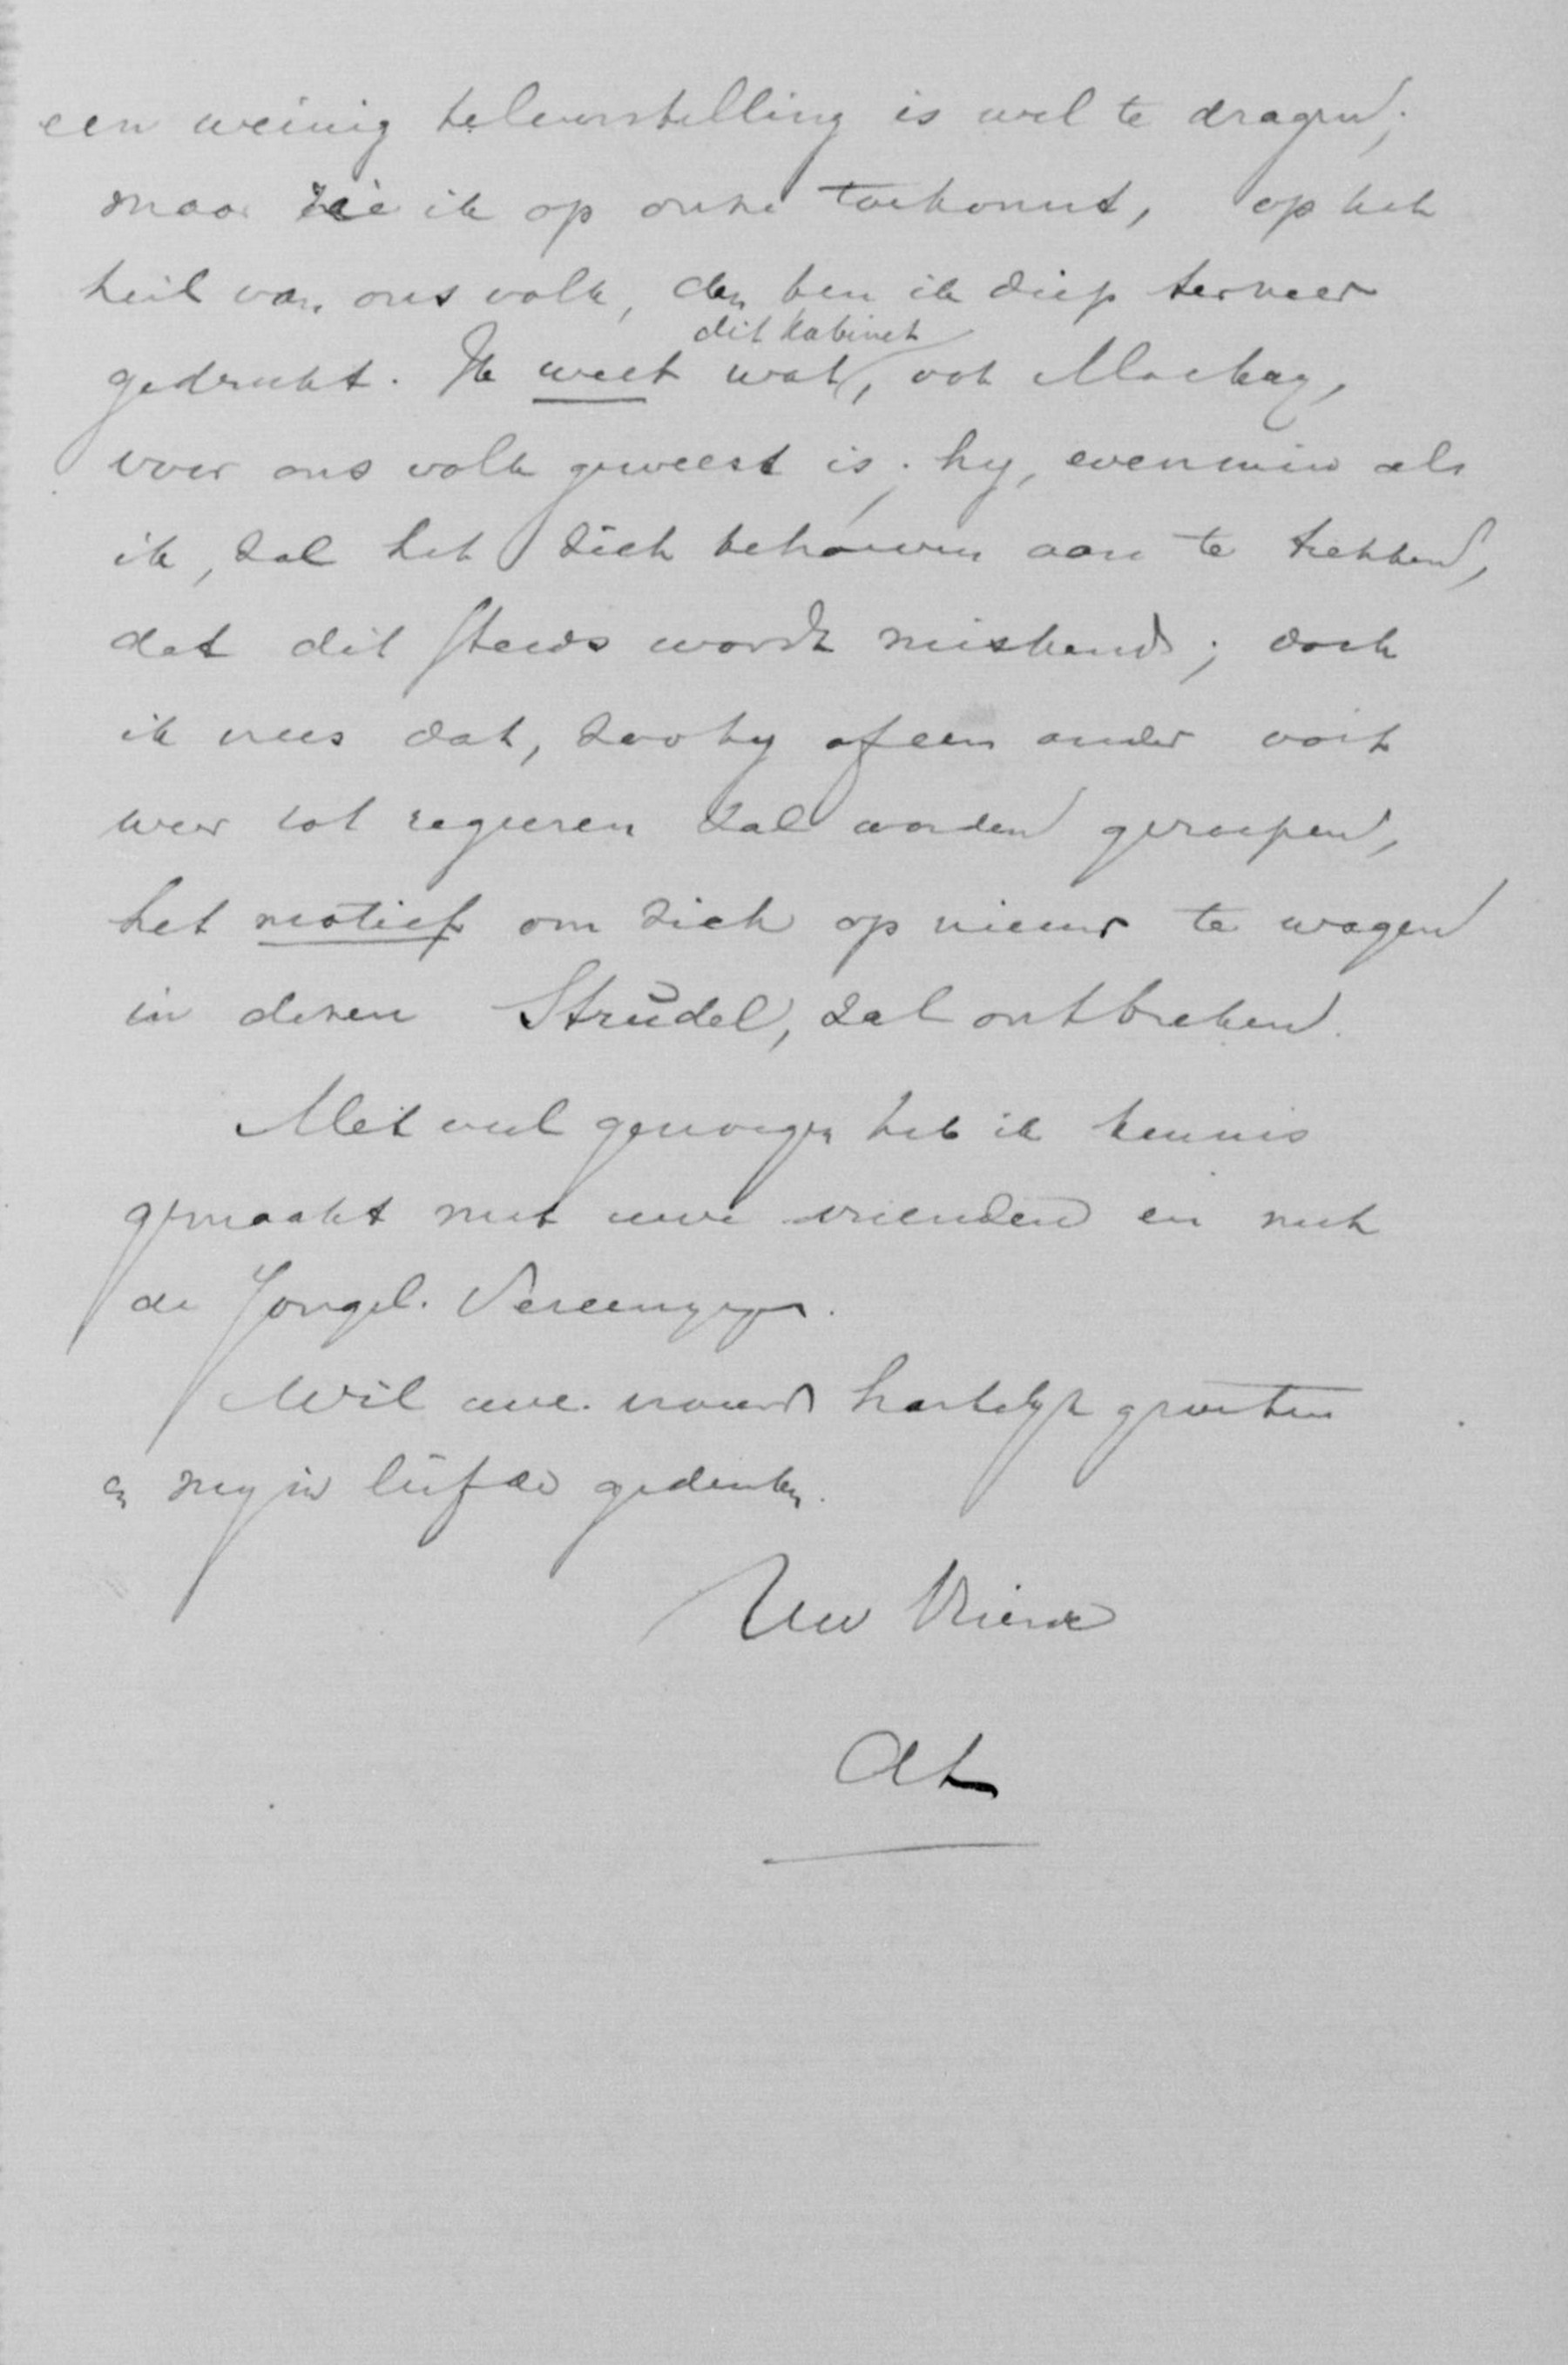 een weinig teleurstelling is wel te dragen;
maar zie ik op onze toekomst, op het
heil van ons volk, dan ben ik diep terneer
gedrukt. Ik weet wat dit kabinet, ook Mackay,
voor ons volk geweest is; hy, evenmin als
ik, zal het zich behoeven aan te trekken,
dat dit steeds wordt miskend; doch
ik vrees dat, zoo hy of een ander ooit
weer tot regeeren zal worden geroepen,
het motief om zich op nieuw te wagen
in dezen Strudel, zal ontbreken.
Met veel genoegen heb ik kennis
gemaakt met uwe vrienden en met
de Jongel. Vereenigingen.
Wil uwe vrouw hartelyk groeten
en my in liefde gedenken.
Uw Vriend